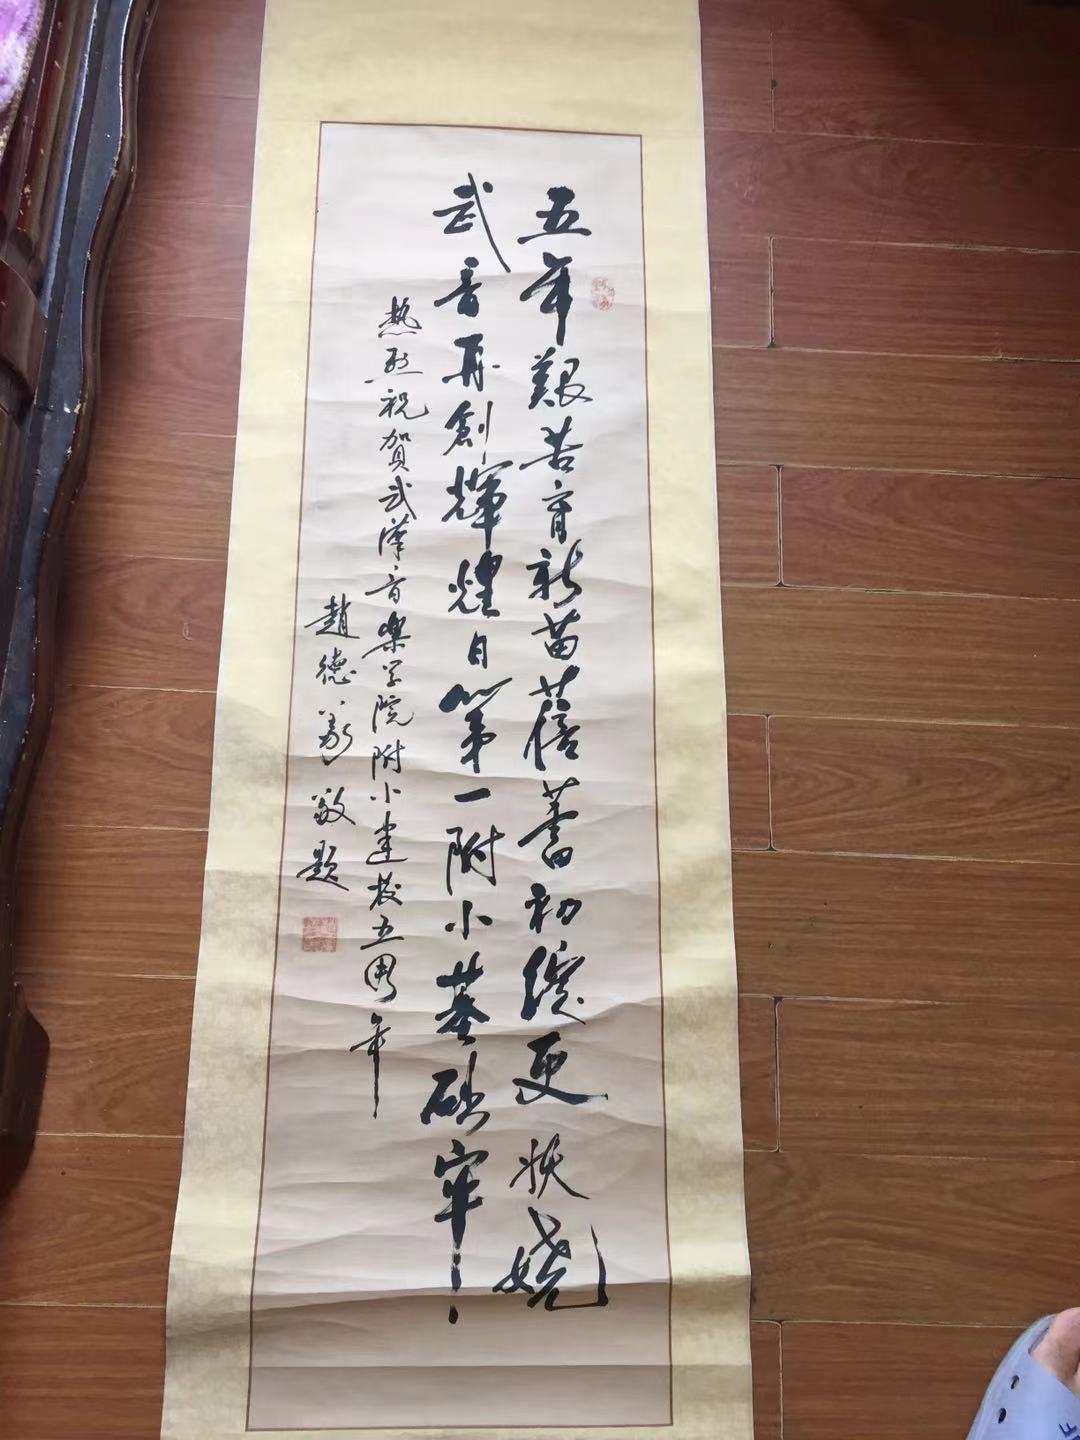 五年艱苦育新苗蓓蕾初綻更妖嬈
武音再創輝煌日第一附小基础牢！
热烈祝贺武漢音樂学院附小建校五周年
趙德義敬題